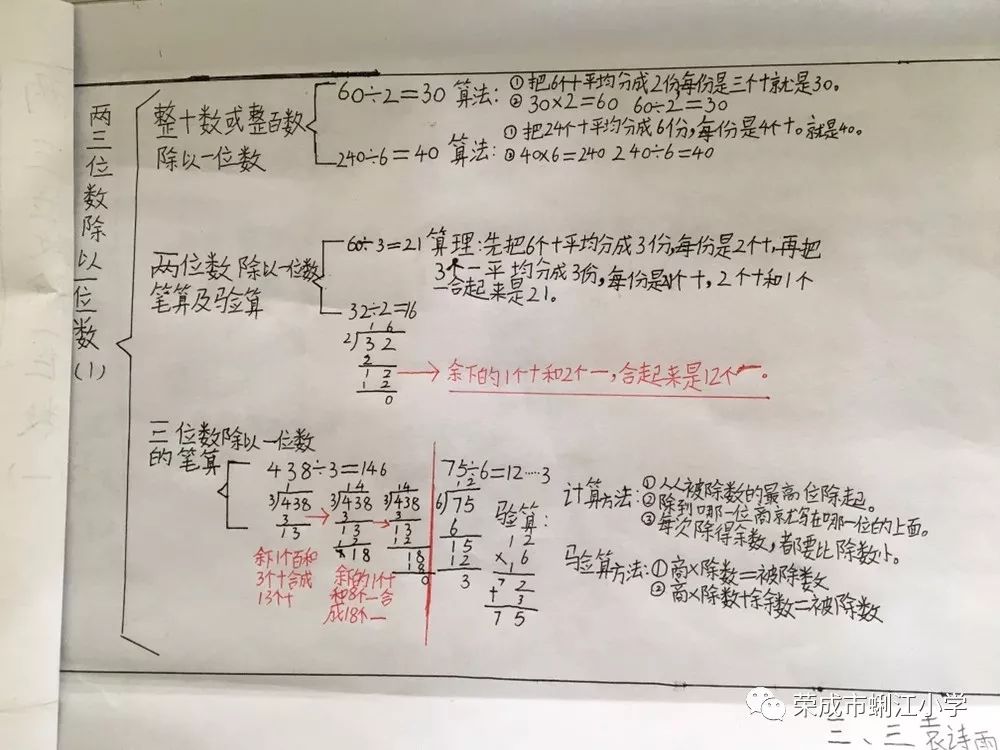 两三位数除以一位数(1)
整十数或整百数
除以一位数
60÷2=30 算法:①把6个十平均分成2份每份是三个十就是30。
②30×2=60 60÷2=30
240÷6=40 算法:①把24个十平均分成6份,每份是4个十。就是40。
②40×6=240 240÷6=40
两位数除以一位数
笔算及验算
60÷3=21 算理:先把6个十平均分成3份,每份是2个十,再把
3个一平均分成3份,每份是1个十,2个十和1个
一合起来是21。
32÷2=16
16
2)32
2
12
12
0
→余下的1个十和2个一,合起来是12个一。
三位数除以一位数
的笔算
438÷3=146
1
3)438
3
13
余下1个百和
3个十合成
13个十
14
3)438
3
13
12
18
余的1个十
和8个一合
成18个一
14
3)438
3
13
12
18
18
0
75÷6=12……3
12
6)75
6
15
12
3
验算:
12
×6
72
+3
75
计算方法:①从被除数的最高位除起。
②除到哪一位商就写在哪一位的上面。
③每次除得余数,都要比除数小。
验算方法:①商×除数=被除数
②商×除数+余数=被除数
荣成市蜊江小学
三、三 袁诗雨